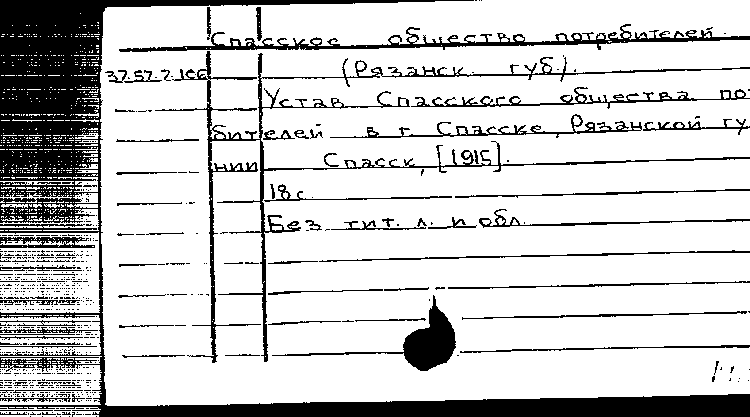 Спасское общество потребителей.
37.57.2.166 (Рязанск. губ.).
Устав Спасского общества пот
бителей в г. Спасске, Рязанской гу
нии Спасск, [1915].
18 с.
Без тит. л. и обл.